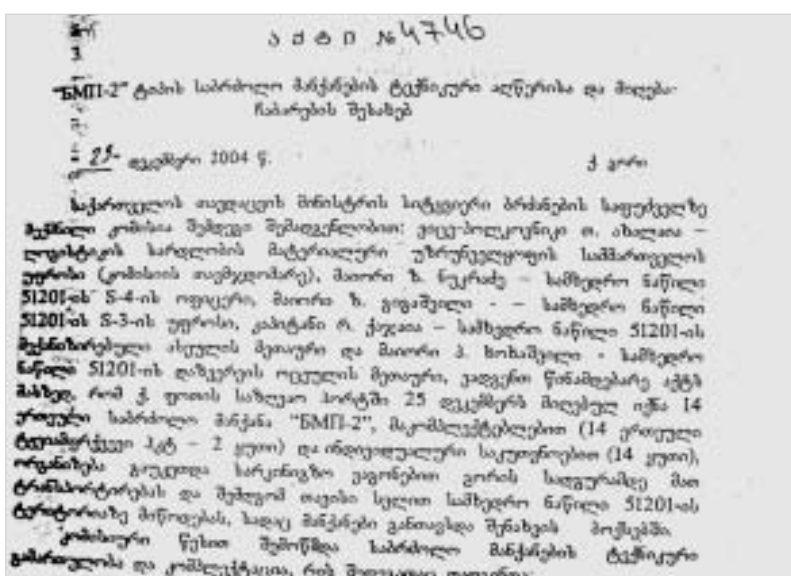 ა ქ ტ ი № 4746
"БМП-2" ტიპის საბრძოლო მანქანების ტექნიკური აღწერისა და მიღება-
ჩაბარების შესახებ
დეკემბერი 2004 წ. ქ. გორი
საქართველოს თავდაცვის მინისტრის სიტყვიერი ბრძანების საფუძველზე
შექმნილი კომისია შემდეგი შემადგენლობით: ვიცე-პოლკოვნიკი თ. ახალაია –
ლოგისტიკის სარდლობის მატერიალური უზრუნველყოფის სამმართველოს
უფროსი (კომისიის თავმჯდომარე), მაიორი ზ. ნუკრაძე – სამხედრო ნაწილი
51201-ის S-4-ის ოფიცერი, მაიორი ზ. გიგაშვილი - – სამხედრო ნაწილი
51201-ის S-3-ის უფროსი, კაპიტანი რ. ქაჯაია – სამხედრო ნაწილი 51201-ის
მექანიზირებული ასეულის მეთაური და მაიორი პ. ხოხაშვილი - სამხედრო
ნაწილი 51201-ის დაზვერვის ოცეულის მეთაური, ვადგენთ წინამდებარე აქტს
მასზედ, რომ ქ. ფოთის საზღვაო პორტში 25 დეკემბერს მიღებულ იქნა 14
ერთეული საბრძოლო მანქანა "БМП-2", მაკომპლექტებლებით (14 ერთეული
ტყვიამფრქვევი პკტ – 2 ყუთი) და ინდივიდუალური საკუთვნოებით (14 ყუთი),
ორგანიზება გაუკეთდა სარკინიგზო ვაგონებით გორის სადგურამდე მათ
ტრანსპორტირებას და შემდგომ თავისი სვლით სამხედრო ნაწილი 51201-ის
ტერიტორიაზე მიწოდებას, სადაც მანქანები განთავსდა შენახვის ბოქსებში.
კომისიური წესით შემოწმდა საბრძოლო მანქანების ტექნიკური
გამართულობა და კომპლექტაცია, რის შედეგადაც დადგინდა: